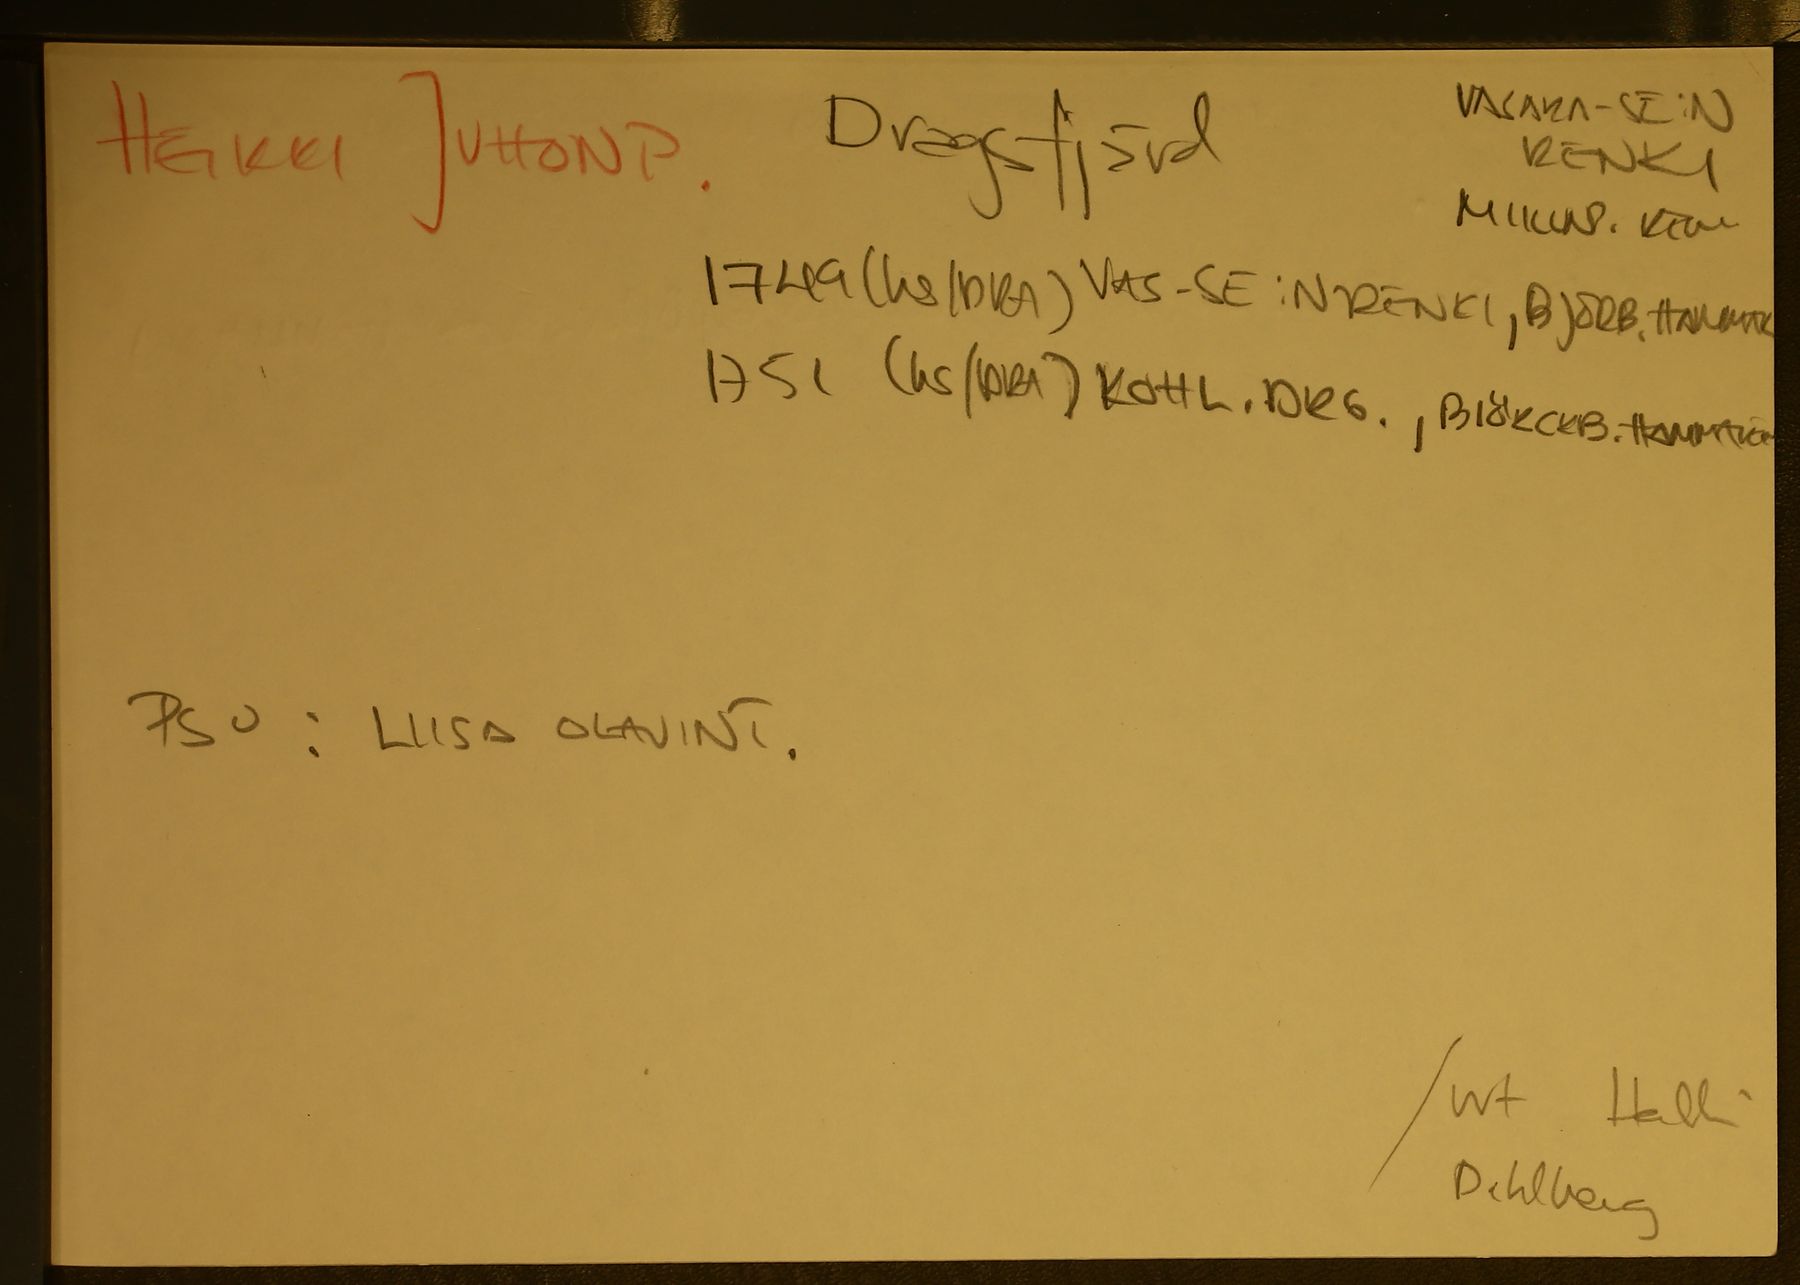 HEIKKI JUHONP. Dragsfjärd
VASARA-SE:N
RENKI
1749 (hs/DRA) VAS-SE:N RENKI, BJÖRB. HAMMAR
1751 (hs/DRA) KOHL. DRG., BIÖRCKB. HAMMAR
PSO : LIISA OLAVINT.
/vrt Halli
Dahlberg